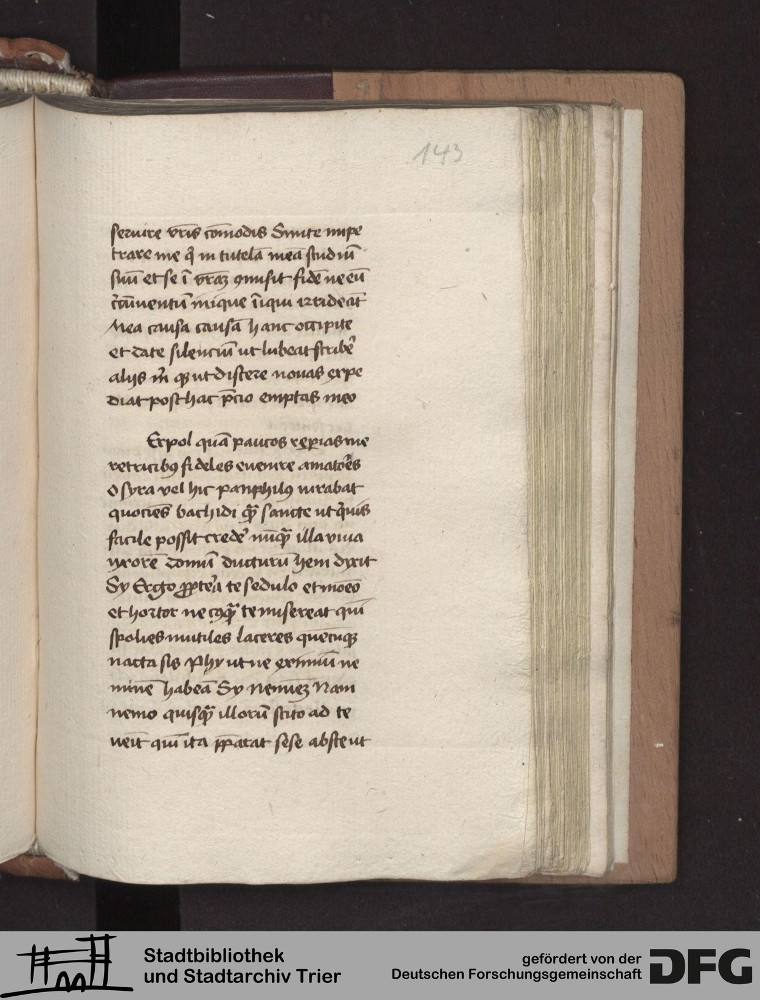 143
seruire vr̄is cōmodis Sinite inpe
trare me q̄ in tutelā meā studiū
suū et se ī vrāʒ ꝯmisit fidē ne eū
cc̄ūuentū inique īiqui irrideāt
Mea causa causā hanc accipite
et date silenciū ut lubeat scribe͛
alijs m̄ qꝫ ut discere nouas expe
diat posthac p̄cio emptas meo
Erpol quā paucos reꝑias me
retricibꝰ fideles euenire amatōes
O syra vel hic panphilꝰ iurabat
quociēs bachidi qꝫ̄ sancte ut q̇uis
facile possit crede͛ nūqꝫ̄ illa viua
uxorē domū ducturū hem dyxit
Sy Ergo ꝓpte͛a te sedulo et moeō
et hortor ne cꝰqꝫ̄ te misereat quī
spolies mutiles laceres quecūqꝫ
nacta sis Phy ut ne eximiū ne
minē habeā Sy Neminēʒ Nam
nemo quisqꝫ̄ illorū scito ad te
ueīt quī ita p̄parat sese abs te ut
Stadtbibliothek
und Stadtarchiv Trier
gefördert von der
Deutschen Forschungsgemeinschaft
DFG